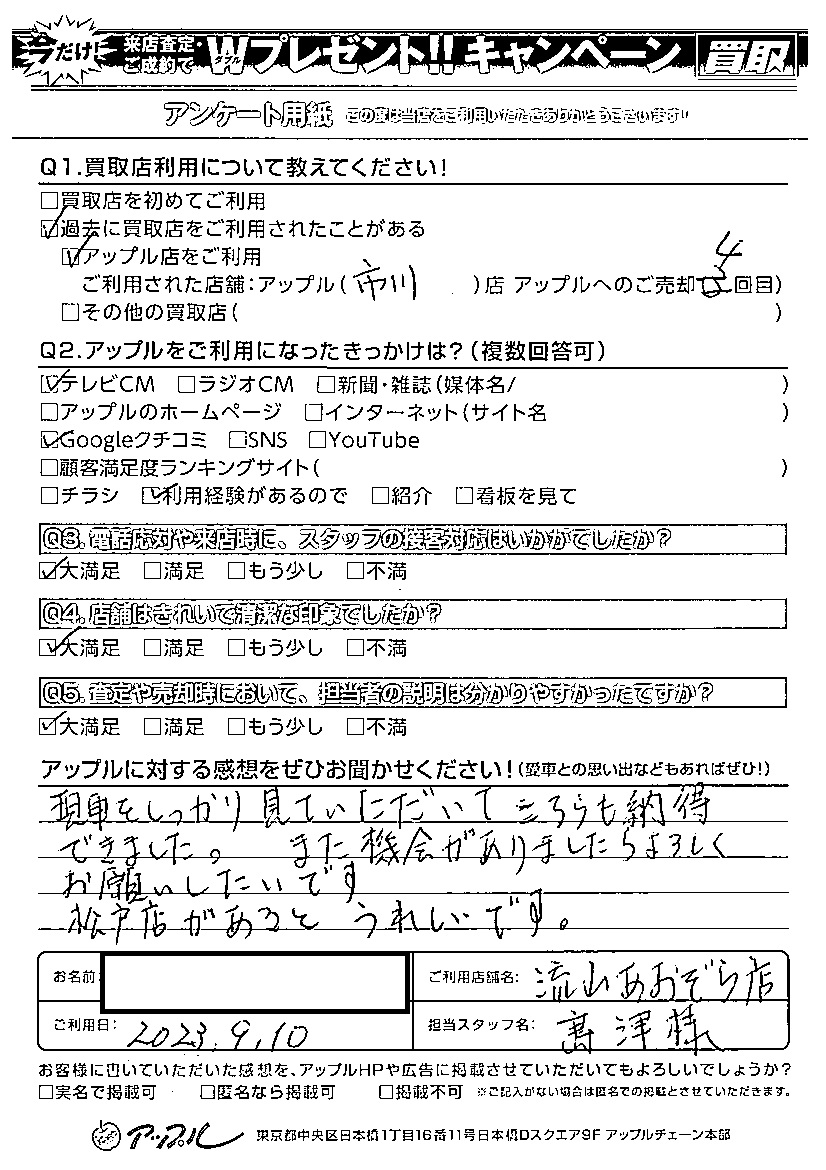 今だけ! 来店査定・ご成約で Wダブルプレゼント!!キャンペーン 買取
アンケート用紙 この度は当店をご利用いただきありがとうございます!
Q1.買取店利用について教えてください!
□買取店を初めてご利用
☑過去に買取店をご利用されたことがある
☑アップル店をご利用
ご利用された店舗:アップル(市川)店 アップルへのご売却 4 回目)
□その他の買取店( )
Q2.アップルをご利用になったきっかけは?(複数回答可)
☑テレビCM □ラジオCM □新聞・雑誌(媒体名/ )
□アップルのホームページ □インターネット(サイト名 )
☑Googleクチコミ □SNS □YouTube
□顧客満足度ランキングサイト( )
□チラシ ☑利用経験があるので □紹介 □看板を見て
Q3.電話応対や来店時に、スタッフの接客対応はいかがでしたか?
☑大満足 □満足 □もう少し □不満
Q4.店舗はきれいで清潔な印象でしたか?
☑大満足 □満足 □もう少し □不満
Q5.査定や売却時において、担当者の説明は分かりやすかったですか?
☑大満足 □満足 □もう少し □不満
アップルに対する感想をぜひお聞かせください!(愛車との思い出などもあればぜひ!)
現車をしっかり見ていただいてこちらも納得
できました。 また機会がありましたらよろしく
お願いしたいです
松戸店があるとうれしいです。
お名前: ご利用店舗名: 流山あおぞら店
ご利用日: 2023.9.10 担当スタッフ名: 高澤様
お客様に書いていただいた感想を、アップルHPや広告に掲載させていただいてもよろしいでしょうか?
□実名で掲載可 □匿名なら掲載可 □掲載不可 ※ご記入がない場合は匿名での掲載とさせていただきます。
アップル 東京都中央区日本橋1丁目16番11号日本橋Dスクエア9F アップルチェーン本部